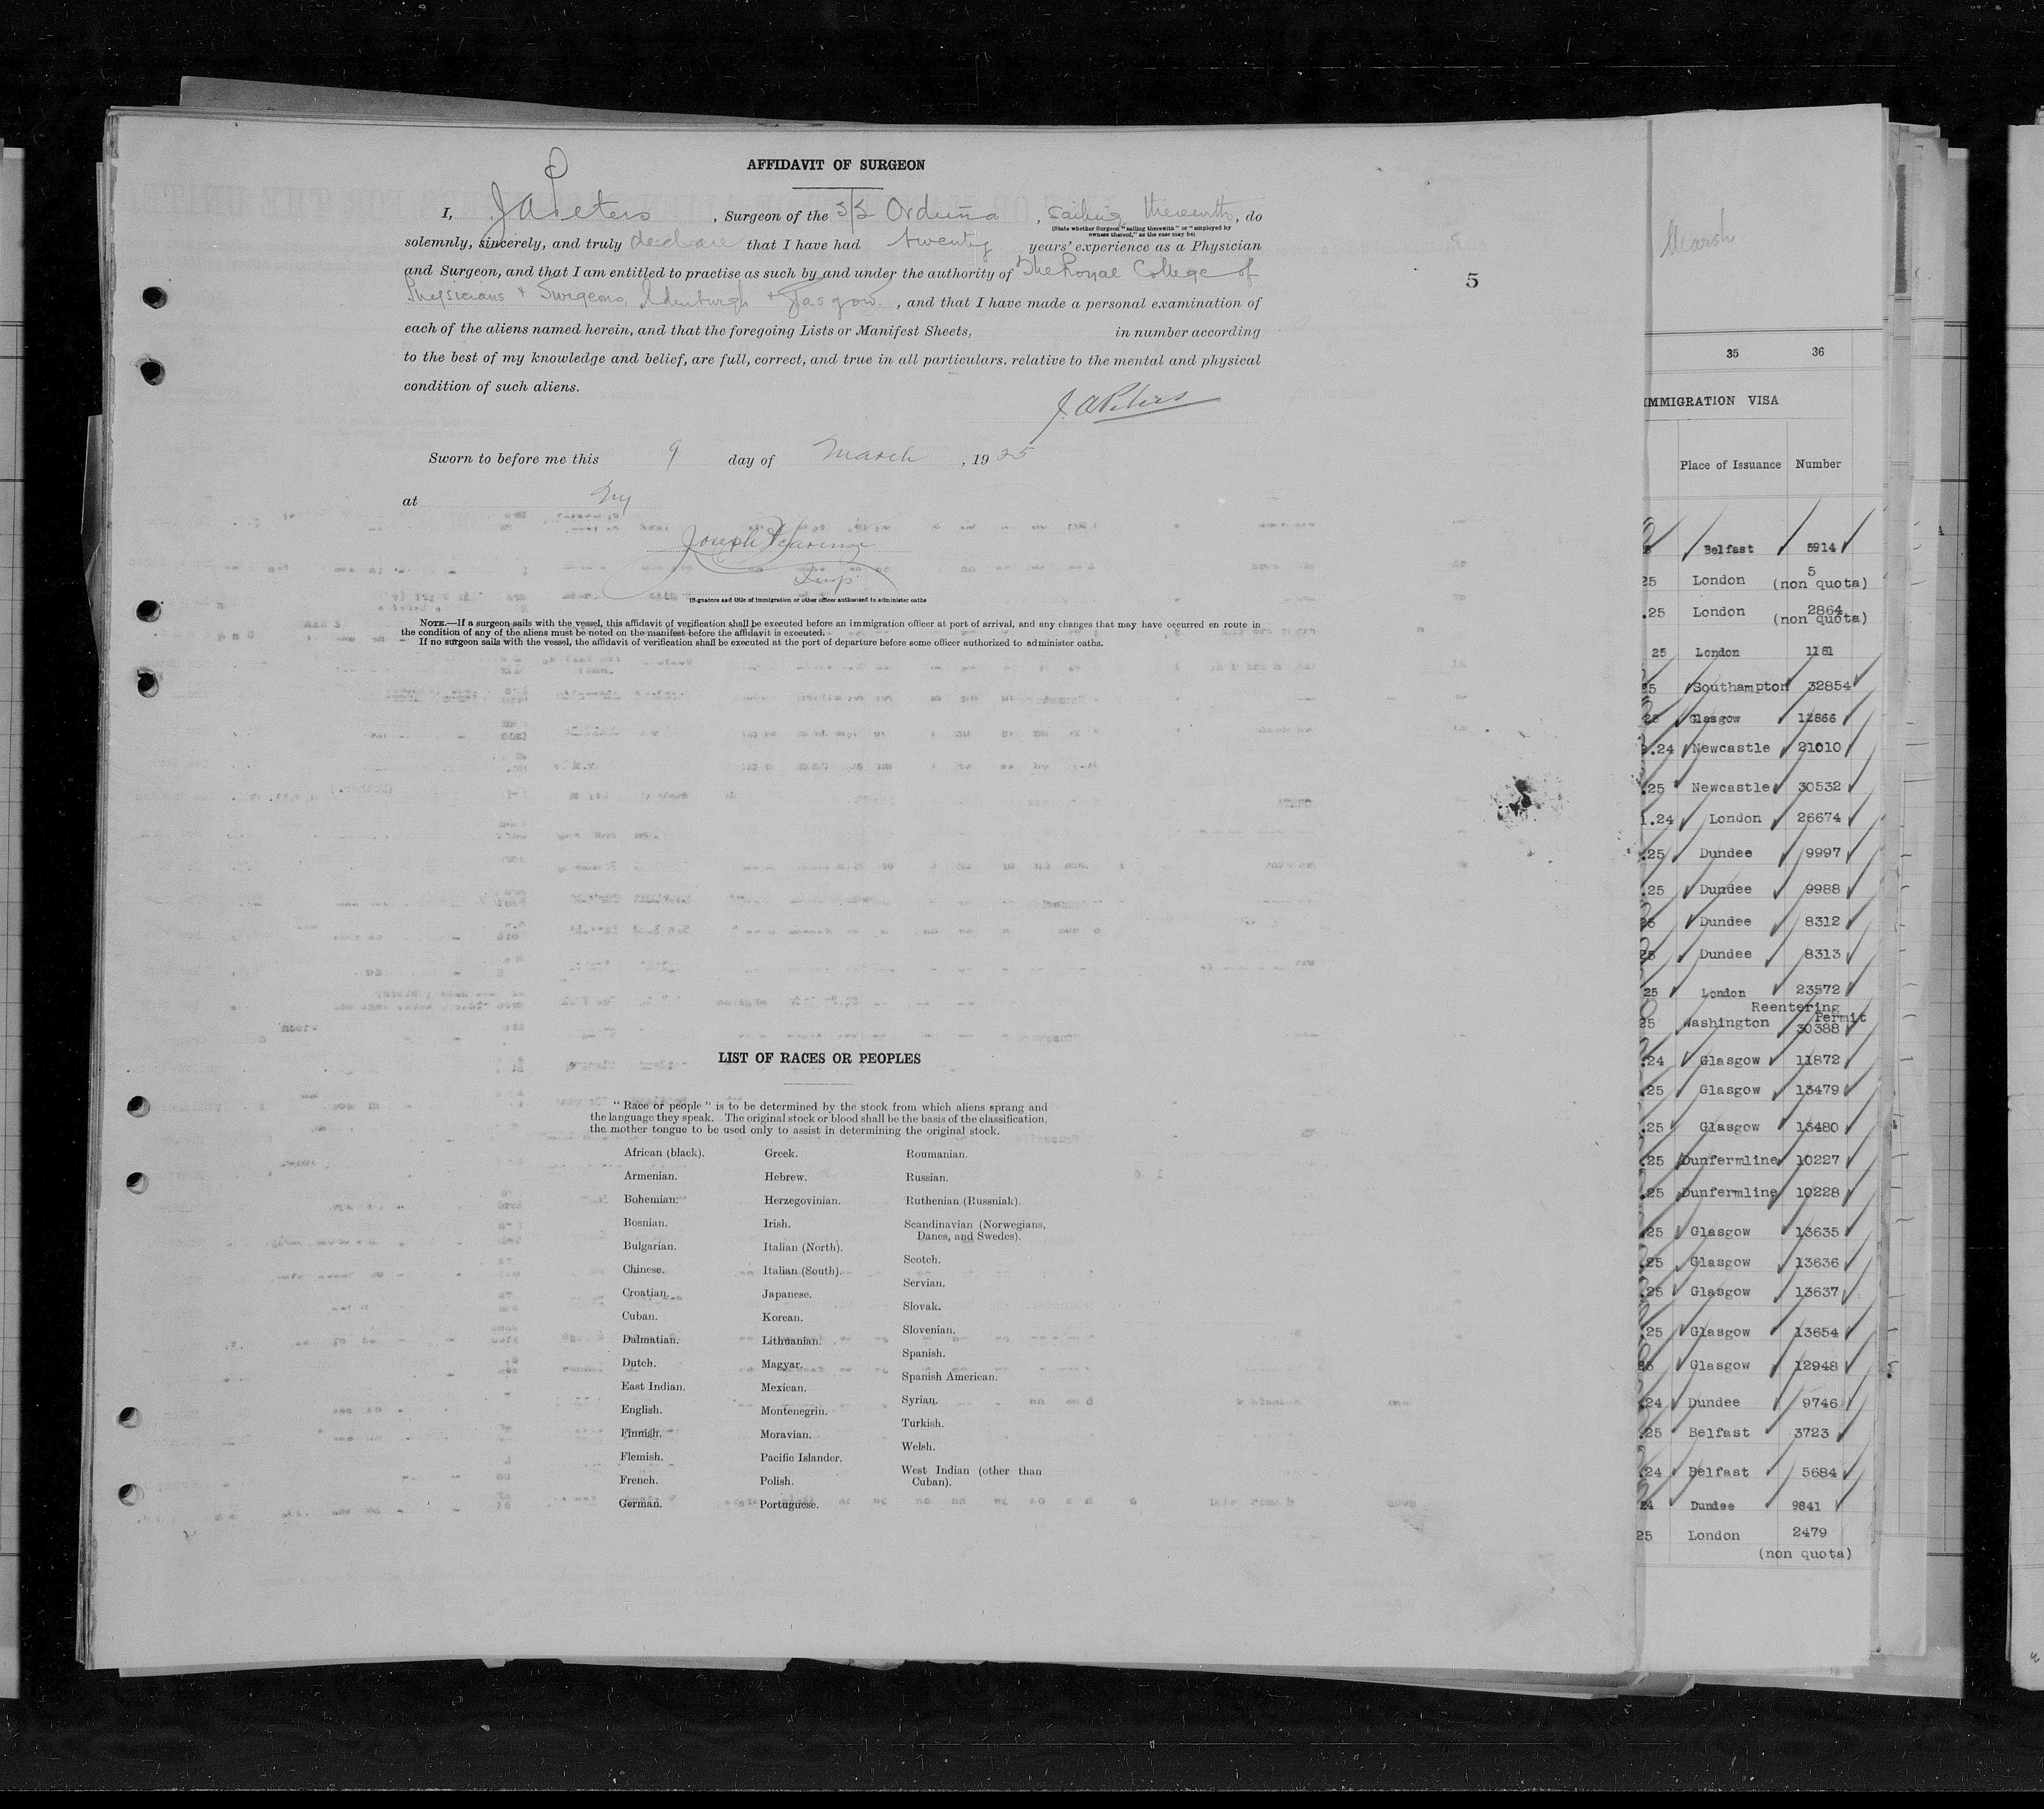 AFFIDAVIT OF SURGEON
I, J A Peters , Surgeon of the S/S Orduña , sailing therewith, do
(State whether Surgeon "sailing therewith" or "employed by
owners thereof," as the case may be)
solemnly, sincerely, and truly declare that I have had twenty years' experience as a Physician
and Surgeon, and that I am entitled to practise as such by and under the authority of The Royal College of
Physicians & Surgeons, Edinburgh & Glasgow. , and that I have made a personal examination of
each of the aliens named herein, and that the foregoing Lists or Manifest Sheets, in number according
to the best of my knowledge and belief, are full, correct, and true in all particulars. relative to the mental and physical
condition of such aliens.
J. A Peters
Sworn to before me this 9 day of March , 19 25
at NY
Joseph
Insp.
(Signature and title of immigration or other officer authorized to administer oaths
NOTE.—If a surgeon sails with the vessel, this affidavit of verification shall be executed before an immigration officer at port of arrival, and any changes that may have occurred en route in
the condition of any of the aliens must be noted on the manifest before the affidavit is executed.
If no surgeon sails with the vessel, the affidavit of verification shall be executed at the port of departure before some officer authorized to administer oaths.
5
LIST OF RACES OR PEOPLES
"Race or people" is to be determined by the stock from which aliens sprang and
the language they speak. The original stock or blood shall be the basis of the classification,
the mother tongue to be used only to assist in determining the original stock.
African (black).
Armenian.
Bohemian.
Bosnian.
Bulgarian.
Chinese.
Croatian.
Cuban.
Dalmatian.
Dutch.
East Indian.
English.
Finnish.
Flemish.
French.
German.
Greek.
Hebrew.
Herzegovinian.
Irish.
Italian (North).
Italian (South).
Japanese.
Korean.
Lithuanian.
Magyar.
Mexican.
Montenegrin.
Moravian.
Pacific Islander.
Polish.
Portuguese.
Roumanian.
Russian.
Ruthenian (Russniak).
Scandinavian (Norwegians,
Danes, and Swedes).
Scotch.
Servian.
Slovak.
Slovenian.
Spanish.
Spanish American.
Syrian.
Turkish.
Welsh.
West Indian (other than
Cuban).
Marsh
35 36
IMMIGRATION VISA
Place of Issuance Number
Belfast 5914
25 London 5
(non quota)
.25 London 2864
(non quota)
25 London 1181
25 Southampton 32854
25 Glasgow 12866
.24 Newcastle 21010
.25 Newcastle 30532
1.24 London 26674
.25 Dundee 9997
.25 Dundee 9988
25 Dundee 8312
25 Dundee 8313
25 London 23572
Reentering
Permit
25 Washington 30388
.24 Glasgow 11872
.25 Glasgow 13479
.25 Glasgow 13480
.25 Dunfermline 10227
.25 Dunfermline 10228
.25 Glasgow 13635
.25 Glasgow 13636
.25 Glasgow 13637
.25 Glasgow 13654
25 Glasgow 12948
.24 Dundee 9746
.25 Belfast 3723
.24 Belfast 5684
24 Dundee 9841
25 London 2479
(non quota)